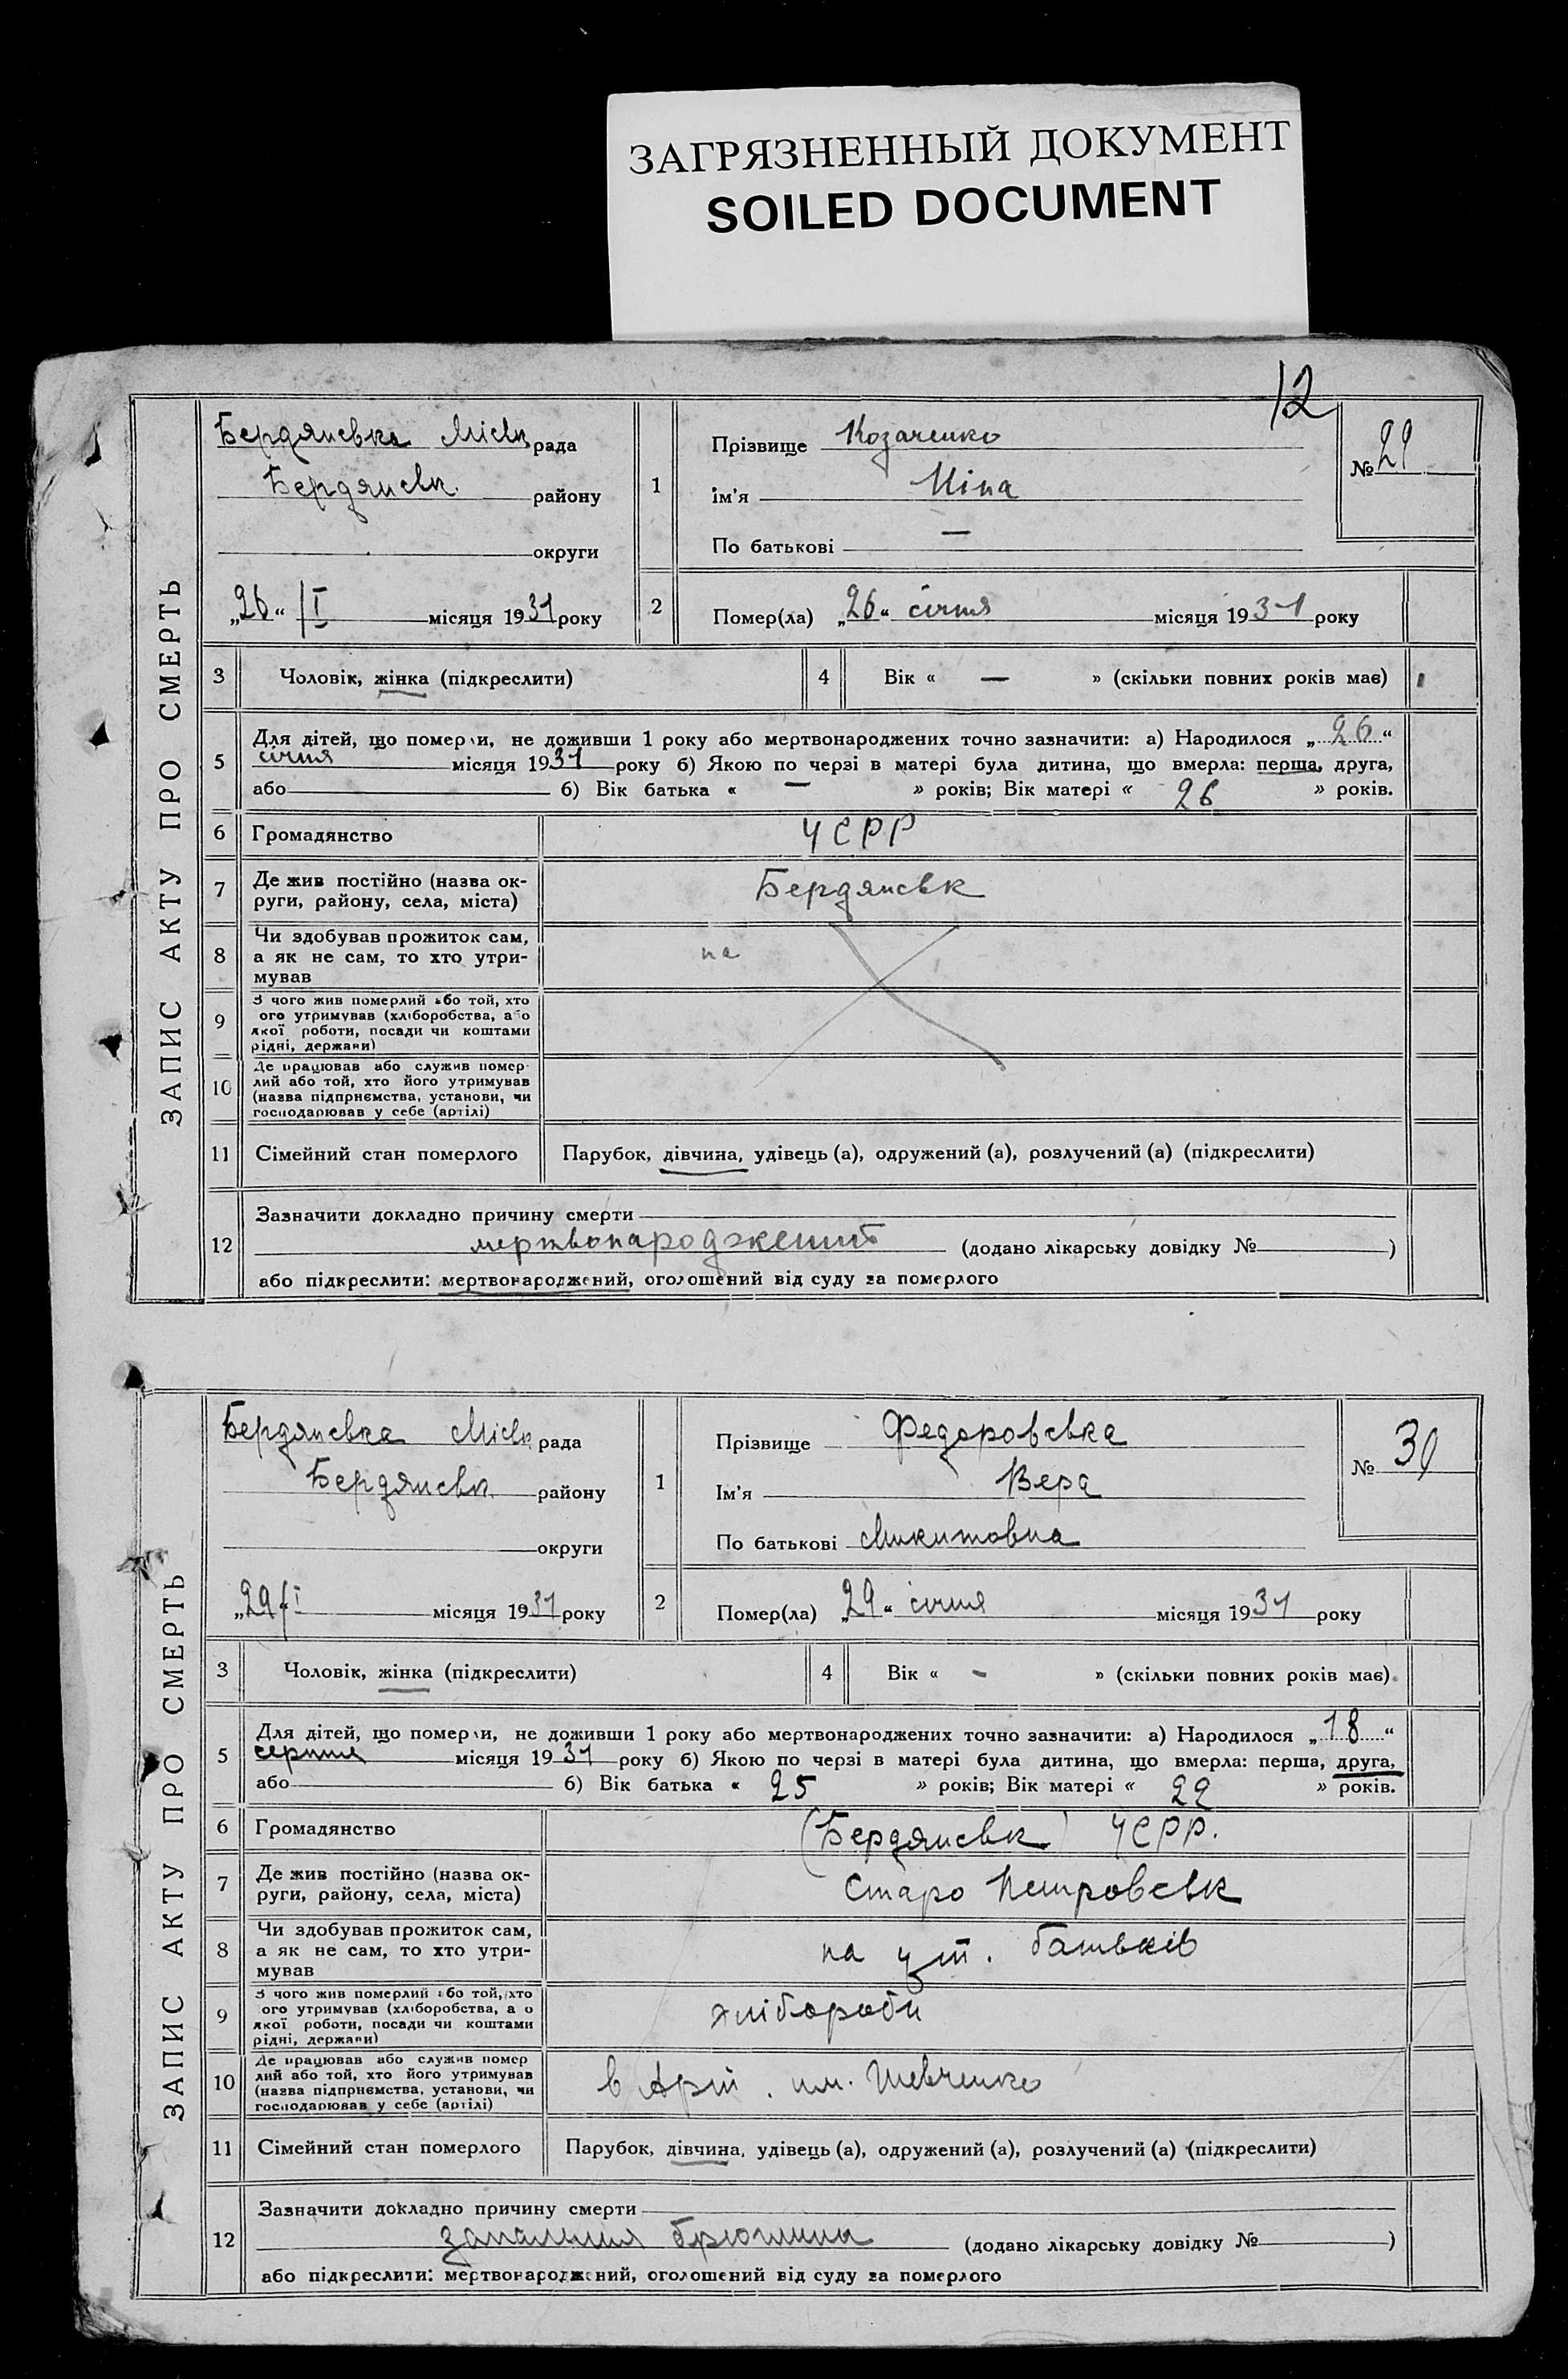 ЗАГРЯЗНЕННЫЙ ДОКУМЕНТ
SOILED DOCUMENT
12
ЗАПИС АКТУ ПРО СМЕРТЬ
Бердянська Міськ рада
Бердянськ району
округи
„26“ /I місяця 1931 року
1
Прізвище Козаченко
Ім'я Ніна
По батькові —
№ 29
2 Помер(ла) „26“ січня місяця 1931 року
3 Чоловік, жінка (підкреслити)
4 Вік « — » (скільки повних років має)
5 Для дітей, що померли, не доживши 1 року або мертвонароджених точно зазначити: а) Народилося „26“
січня місяця 1931 року б) Якою по черзі в матері була дитина, що вмерла: перша, друга,
або б) Вік батька « — » років; Вік матері « 26 » років.
6 Громадянство УСРР
7 Де жив постійно (назва ок-
руги, району, села, міста) Бердянськ
8 Чи здобував прожиток сам,
а як не сам, то хто утри- на
мував
9 З чого жив померлий або той, хто
ого утримував (хліборобства, або
якої роботи, посади чи коштами
рідні, держави)
10 Де працював або служив помер-
лий або той, хто його утримував
(назва підприємства, установи, чи
господарював у себе (артілі)
11 Сімейний стан померлого Парубок, дівчина, удівець (а), одружений (а), розлучений (а) (підкреслити)
12 Зазначити докладно причину смерти
мертвонароджений (додано лікарську довідку № )
або підкреслити: мертвонароджений, оголошений від суду за померлого
ЗАПИС АКТУ ПРО СМЕРТЬ
Бердянська Міськ рада
Бердянськ району
округи
„29“ /I місяця 1931 року
1
Прізвище Федоровська
Ім'я Вера
По батькові Микитовна
№ 30
2 Помер(ла) „29“ січня місяця 1931 року
3 Чоловік, жінка (підкреслити)
4 Вік « — » (скільки повних років має)
5 Для дітей, що померли, не доживши 1 року або мертвонароджених точно зазначити: а) Народилося „18“
серпня місяця 1931 року б) Якою по черзі в матері була дитина, що вмерла: перша, друга,
або б) Вік батька « 25 » років; Вік матері « 22 » років.
6 Громадянство (Бердянськ) УСРР.
7 Де жив постійно (назва ок-
руги, району, села, міста) Старо Петровськ
8 Чи здобував прожиток сам,
а як не сам, то хто утри- на ут. батьків
мував
9 З чого жив померлий або той, хто
ого утримував (хліборобства, а о
якої роботи, посади чи коштами
рідні, держави) хлібороби
10 Де працював або служив помер
лий або той, хто його утримував
(назва підприємства, установи, чи
господарював у себе (артілі) в Арт. им. Шевченко
11 Сімейний стан померлого Парубок, дівчина, удівець (а), одружений (а), розлучений (а) (підкреслити)
12 Зазначити докладно причину смерти
запалення брюшини (додано лікарську довідку № )
або підкреслити: мертвонароджений, оголошений від суду за померлого